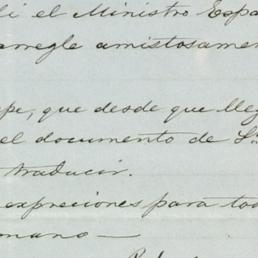 el Ministro Espa
arregle amistosamen
que desde que lleg
el documento de S
traducir.
expreciones para tod
mano